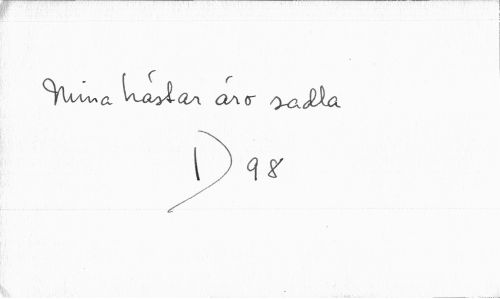 Mina hástar áro sadla
D 98